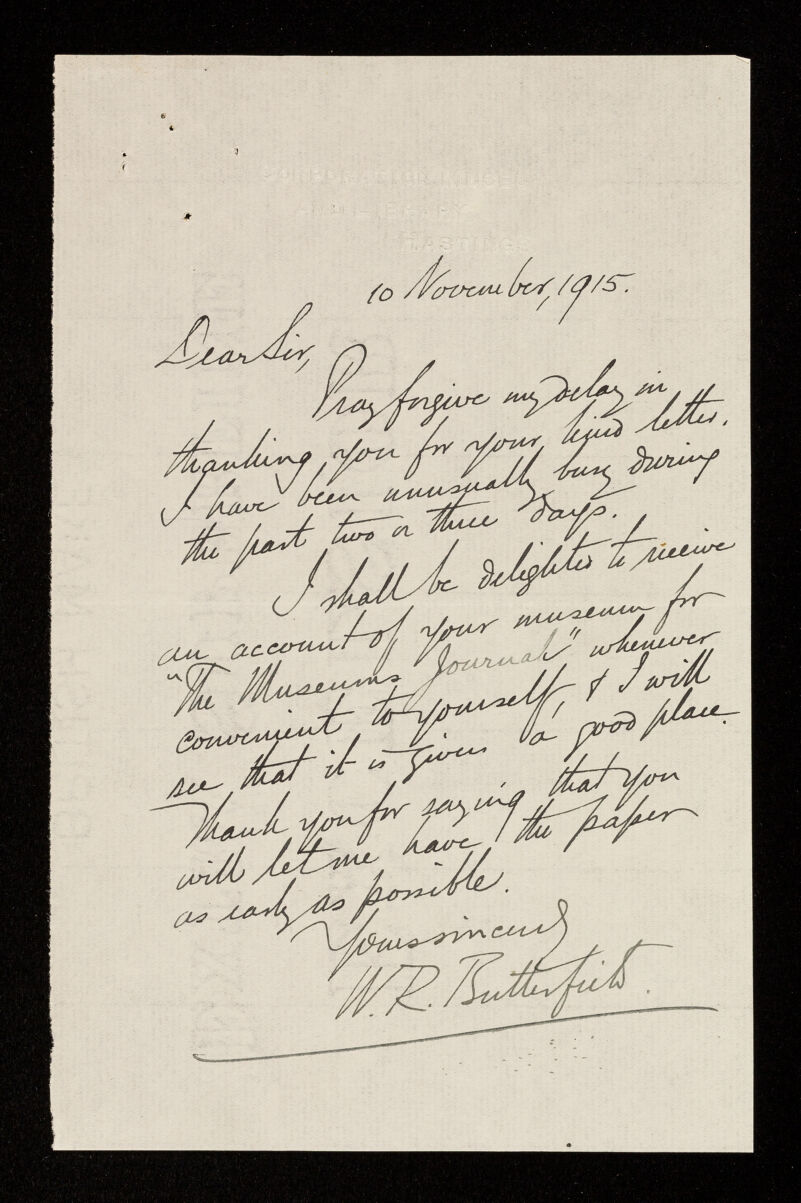 CORPORATION MUSEUM
AND LIBRARY
HASTINGS
10 November, 1915.
Dear Sir,
Pray forgive my delay in
thanking you for your kind letter.
I have been unusually busy during
the past two or three days.
I shall be delighted to receive
an account of your museum for
"The Museums Journal" whenever
convenient to yourself, & I will
see that it is given a good place.
Thank you for saying that you
will let me have the paper
as early as possible.
Yours sincerely
W. R. Butterfield.